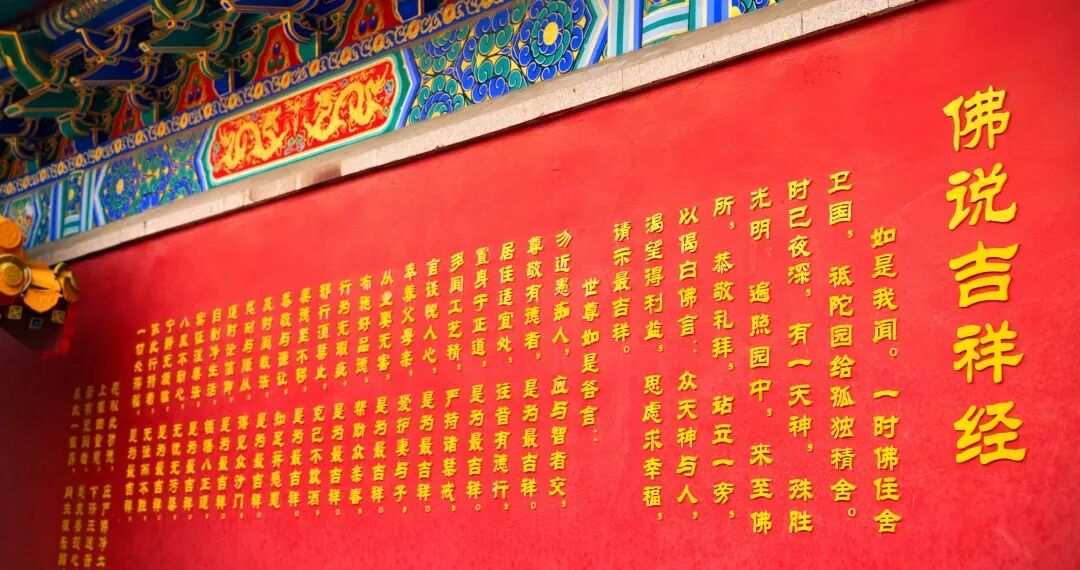 佛说吉祥经
如是我闻。一时佛住舍
卫国,祇陀园给孤独精舍。
时已夜深,有一天神,殊胜
光明 遍照园中,来至佛
所,恭敬礼拜,站立一旁,
以偈白佛言:众天神与人,
渴望得利益,思虑求幸福,
请示最吉祥。
世尊如是答言:
勿近愚痴人,应与智者交,
尊敬有德者,是为最吉祥。
居住适宜处,往昔有德行,
置身于正道,是为最吉祥。
多闻工艺精,严持诸禁戒,
言谈悦人心,是为最吉祥。
奉养父母亲,爱护妻与子,
从业要无害,是为最吉祥。
布施好品德,帮助众亲眷,
行为无瑕疵,是为最吉祥。
邪行须禁止,克己不饮酒,
美德坚不移,是为最吉祥。
恭敬与谦让,知足并感恩,
及时闻教法,是为最吉祥。
忍耐与顺从,得见众沙门,
适时论信仰,是为最吉祥。
自制净生活,领悟八正道,
实证涅槃法,是为最吉祥。
八风不动心,无忧无污染,
宁静无烦恼,是为最吉祥。
依此行持者,无往而不胜,
一切处得福,是为最吉祥。